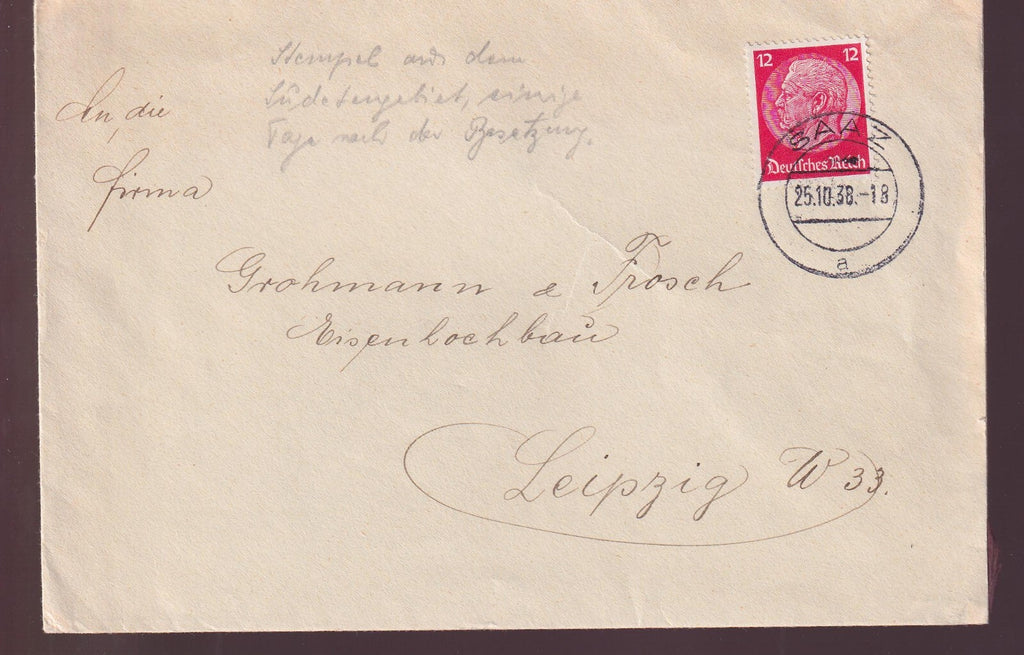 Stempel aus dem
Sudetengebiet, einige
Tage nach der Besetzung.
12 12
Deutsches Reich
SAAZ
25.10.38.-18
a
An die
Firma
Grohmann & Frosch
Eisenhochbau
Leipzig W 33.